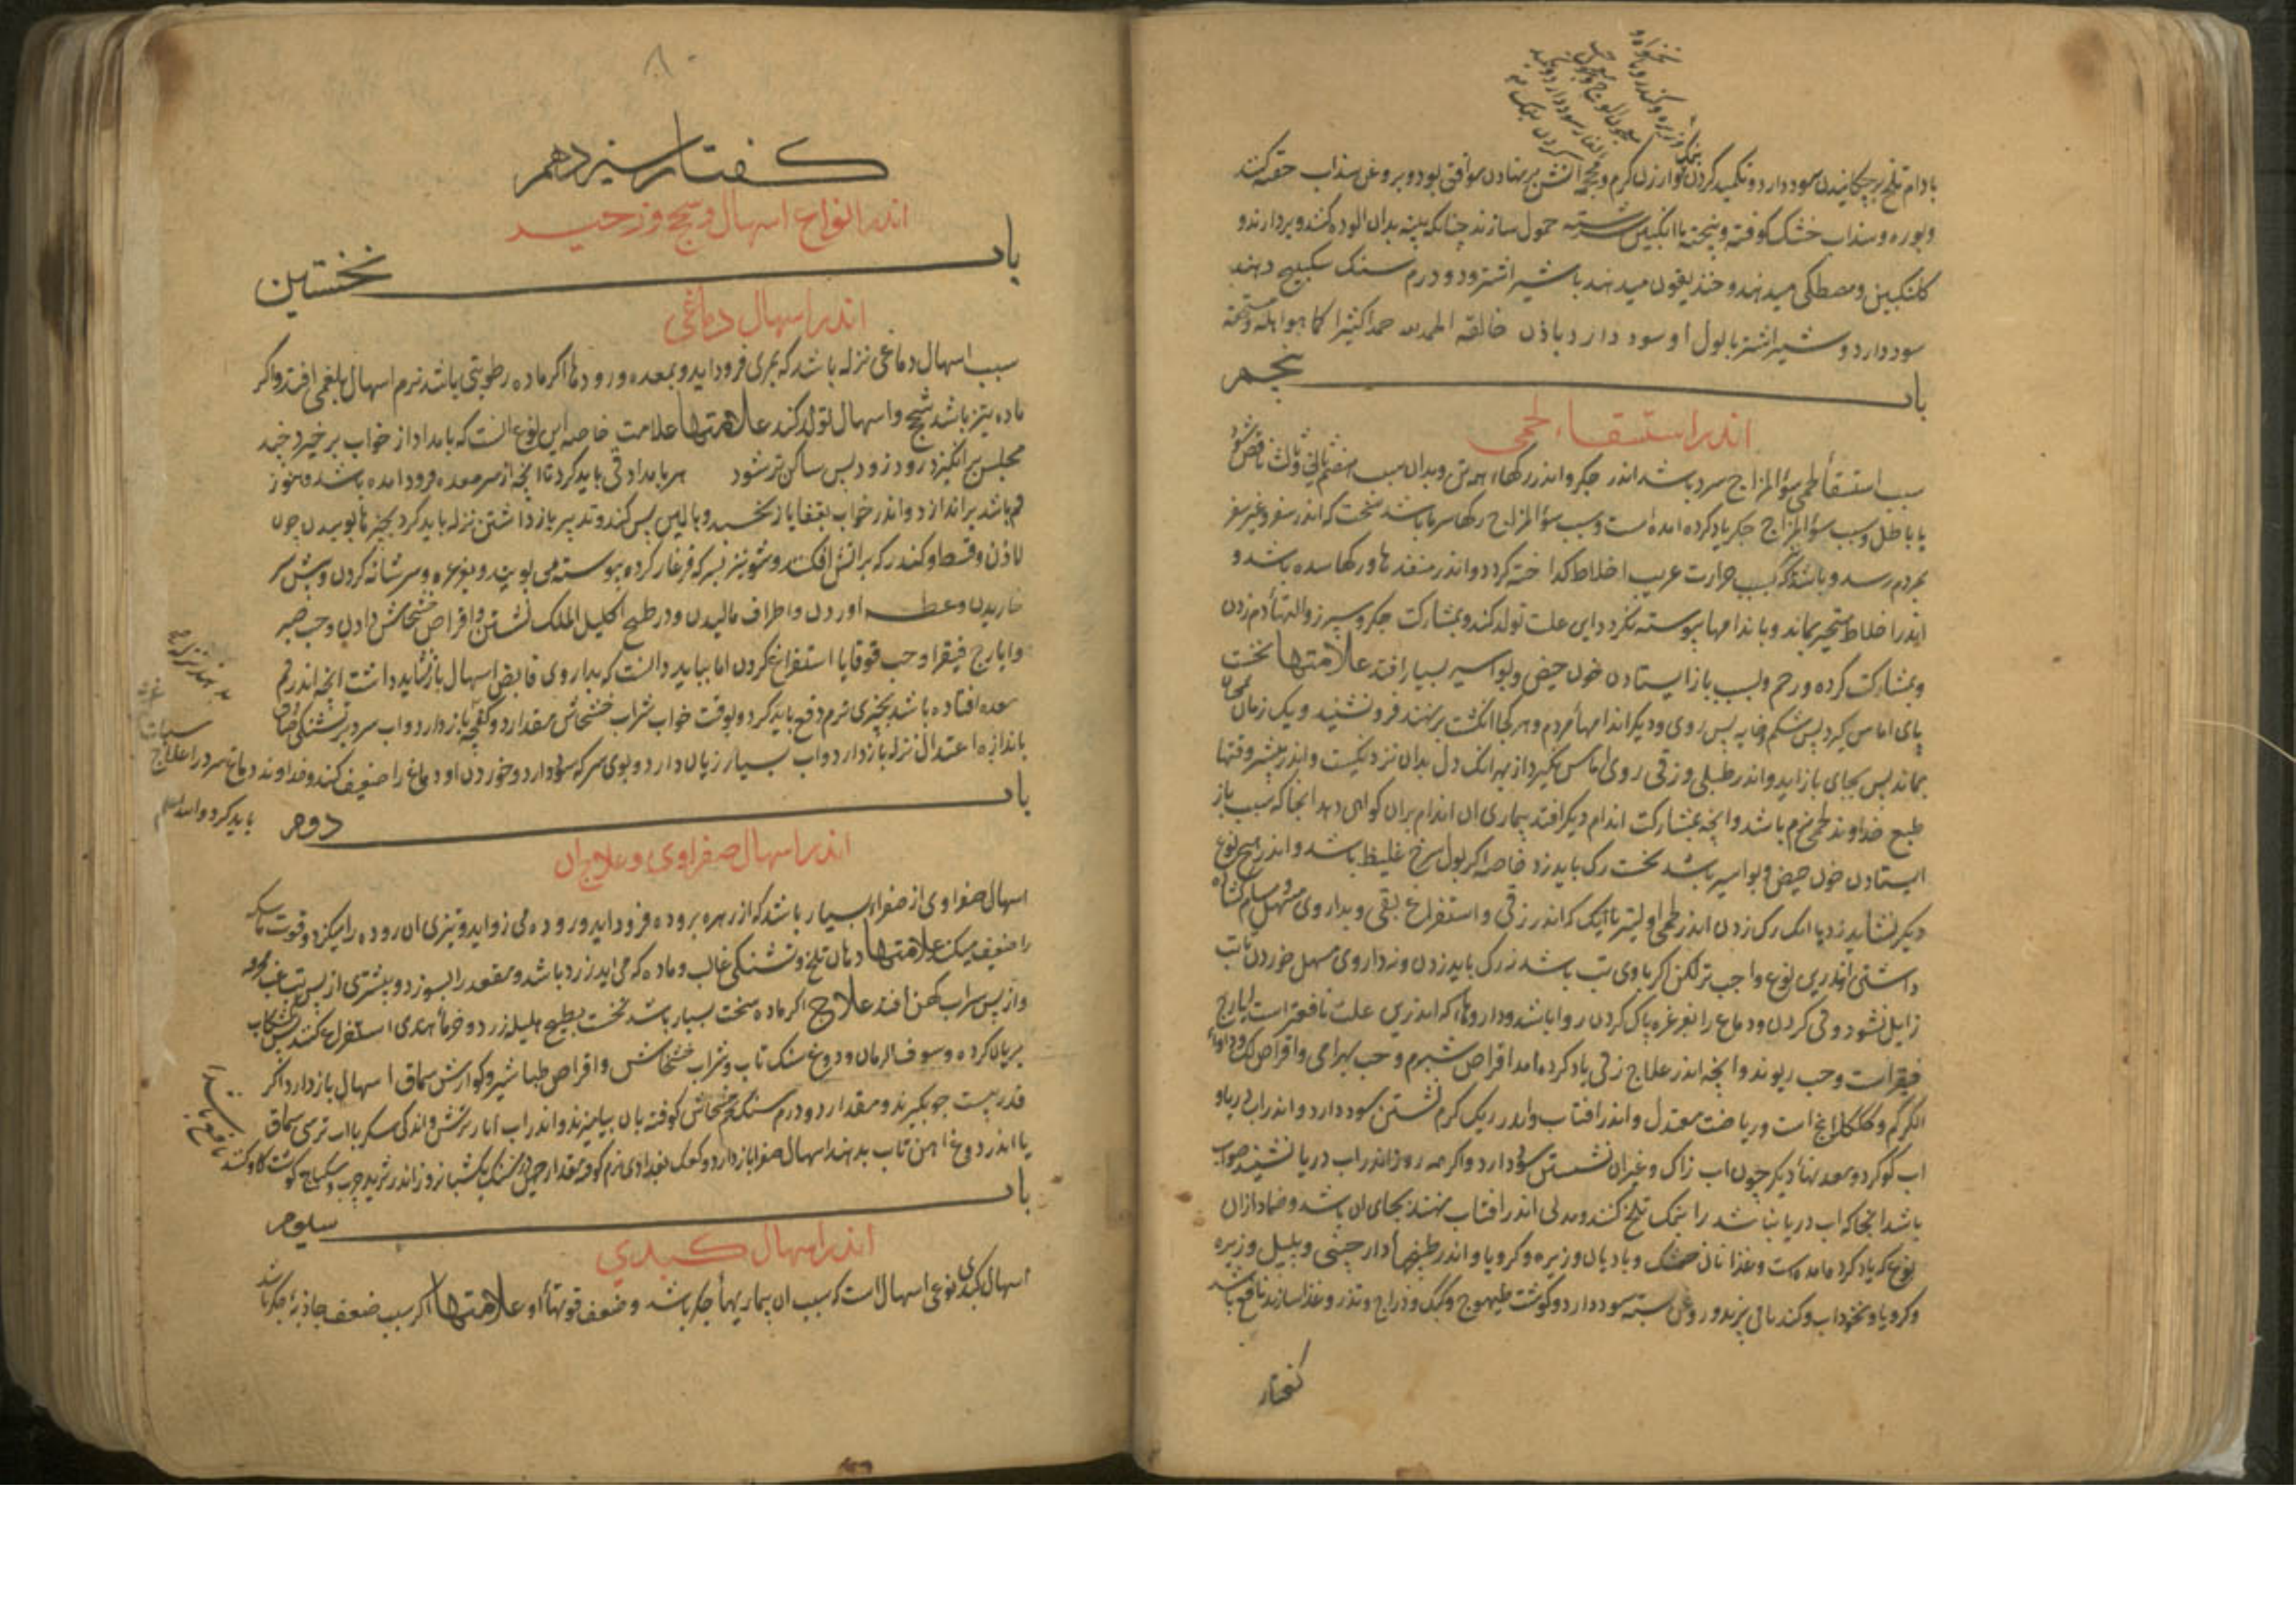 بادام تلخ برچکانیدن سود دارد و تکمید کردن بکاورژن کرم و محجمه اتش برنهادن موافق بود و بروغن سذاب حقنه کنند
وبوره و سذاب خشک کوفته و پخته با انکبین سرشته حمول سازند چنانکه پنبه بدان الوده کنند و بردارند و
کلنکبین و مصطکی میدهند و خندیقون میدهند با شیر اشتر و دو درم سنک سکبینج دهند
سود دارد و شیر اشتر با بول او سود دارد باذن خالقه الحمد لله حمدا کثیرا کما هو اهله و مستحقه
باب پنجم
اندر استسقاء لحمی
سبب استسقأ لحمی سؤالمزاج سرد باشد اندر جکر و اندر رکها همه تن و بدان سبب هضم ثانی و ثالث ناقص شود
یا باطل و سبب سؤالمزاج جکر یاد کرده امده است و سبب سؤالمزاج رکها سرما باشد سخت که اندر سفر و غیر سفر
بمردم رسد و باشد که بسبب حرارت غریب اخلاط کداخته کردد و اندر منفذها و رکها سده باشد و
اندر اخلاط متحیر بماند و باندامها پیوسته نکردد این علت تولد کند و بمشارکت جکر و سپرز و التهأ دم زدن
و بمشارکت کرده و رحم و بسبب باز ایستادن خون حیض و بواسیر بسیار افتد علامتها نخست
پای اماس کیرد پس شکم و خایه پس روی و دیکر اندامهأ مردم و هر کجا انکشت برنهند فرو نشیند و یک زمان همچنان
بماند پس بجای باز اید و اندر طبلی و زقی روی اماس نکیرد از بهر انک دل بدان نزدیکست و اندر بیشتر وقتها
طبع خداوند لحمی نرم باشد و انچه بمشارکت اندام دیکر افتد بیماری ان اندام بران کواهی دهد انجا که سبب باز
ایستادن خون حیض و بواسیر باشد نخست رک باید زد خاصه اکر بول سرخ غلیظ باشد و اندر هیچ نوع
دیکر نشاید زد با انک رک زدن اندر لحمی اولیتر با انک که اندر زقی و استفراغ بقی و بداروی مسهل
داشتن اندرین نوع واجب تر لکن اکر با وی تب باشد نه رک باید زدن و نه داروی مسهل خوردن تا تب
زایل نشود و قی کردن و دماغ را بغرغره پاک کردن روا باشد و داروها که اندرین علت نافعتر است ایارج
فیقراست و حب ریوند و انچه اندر علاج زقی یاد کرده امد اقراص شبرم و حب بهرامی و اقراص لک
الکرکم و کلکلانج است و ریاضت معتدل و اندر افتاب و اندر ریک کرم نشستن سود دارد و اندر اب دریا و
اب کوکرد و معدنهأ دیکر چون اب زاک و غیر ان نشستن سود دارد و اکر همه روز اندر اب دریا نشیند صواب
باشد انجا که اب دریا نباشد را بنمک تلخ کنند و مدتی اندر افتاب بنهند بجای ان باشد و ضماد ازان
نوع که یاد کرده امده است و غذا نان خشک و بادیان و زیره و کرویا و اندر طبخها دارچینی و پلپل و زیره
و کرویا و نخوداب و کندنا پزند و روغن پسته سود دارد و کوشت طیهوج و کبک و دراج و تذرو غذا سازند نافع باشد
کفتار
کفتار سیزدهم
اندر انواع اسهال و سحج و زحیر
باب نخستین
اندر اسهال دماغی
سبب اسهال دماغی نزله باشد که بمری فرود اید و بمعده و رودها اکر ماده رطوبتی باشد نرم اسهال بلغمی افتد و اکر
ماده تیز باشد سحج و اسهال تولد کند علامتها علامت خاصه این نوع انست که بامداد از خواب برخیزد چند
مجلس برانکیزد زود زود پس ساکن تر شود هر بامداد قی باید کرد تا انچه از سر معده فرود امده باشد و هنوز
هم باشد براندازد و اندر خواب بقفا باز نخسبد و بالین پس کند و تدبیر بازداشتن نزله باید کرد بچیزها بوییدن چون
لادن و قسط و کندر که بر اتش افکنند و شونیز بسرکه فرغار کرده و پیوسته می بویند و بغرغره و سر شانه کردن و پس سر
خاریدن و عطسه اوردن و اطراف مالیدن و در طبیخ اکلیل الملک نشستن و اقراص خشخاش دادن و حب صبر
و ایارج فیقرا و حب قوقایا استفراغ کردن اما بباید دانست که بداروی قابض اسهال باز نشاید داشت انچه اندر فم
معده افتاده باشد بچیزی نرم دفع باید کرد و بوقت خواب شراب خشخاش مقدار دو کفچه باز دارد و اب سرد بر تشنکی صادق
باندازه اعتدال نزله باز دارد و اب بسیار زیان دارد و بوی سرکه سود دارد و خوردن او دماغ را ضعیف کند و خداوند دماغ سرد را علاج
باید کرد والله اعلم
باب دوم
اندر اسهال صفراوی و علاج ان
اسهال صفراوی از صفراء بسیار باشد که از زهره بروده فرود اید و روده می زواید و تیزی ان روده را میکزد و قوت ماسکه
را ضعیف میکند علامتها دهان تلخ و تشنکی غالب و ماده که می اید زرد باشد و مقعد را بسوزد و بیشتری از پس تب غب و محرقه
و از پس شراب کهن افتد علاج اکر ماده سخت بسیار باشد نخست بطبیخ هلیله زرد و خرمأ هندی استفراغ کنند پس کشکاب
بریان کرده و سفوف الرمان و دوغ سنک تاب و شراب خشخاش و اقراص طباشیر و کوارش سماق اسهال باز دارد اکر
قدر پست جو بکیرند و مقدار دو درم سنک تخم خشخاش کوفته بان بیامیزند و اندر اب انار ترش و اندکی سکر با اب ترشی سماق
یا اندر دوغ اهن تاب بدهند اسهال صفرا باز دارد و کعک بغدادی نرم کوفته مقدار چهل درم سنک یکشبانروز اندر
باب سیوم
اندر اسهال کبدی
اسهال کبدی نوعی اسهال است که سبب ان بیماریهأ جکر باشد و ضعف قوتهأ او علامتها اکر سبب ضعف جاذبه جکر باشد